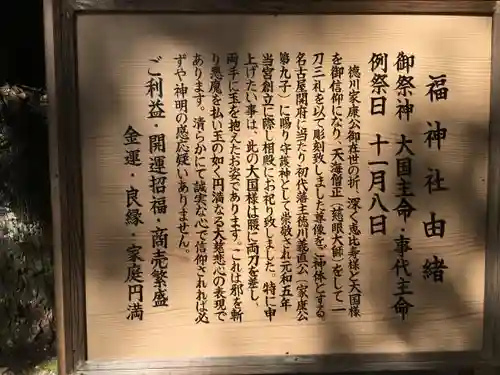 福神社由緒
御祭神 大国主命・事代主命
例祭日 十一月八日
徳川家康公御在世の折、深く恵比寿様と大国様
を御信仰になり、天海僧正（慈眼大師）をして一
刀三札を以て彫刻致しました尊像を、ご神体とする。
名古屋開府に当たり初代藩主徳川義直公（家康公
第九子）に賜り守護神として崇敬され元和五年
当宮創立に際し相殿にお祀り致しました。特に申
上げたい事は、此の大国様は腰に両刀を差し、
両手に玉を抱えたお姿であります。これは邪を斬
り悪魔を払い玉の如く円満なる大慈悲心の表現で
あります。清らかにて誠実な心で信仰されれば必
ずや神明の感応疑いありません。
ご利益・開運招福・商売繁盛
金運・良縁・家庭円満